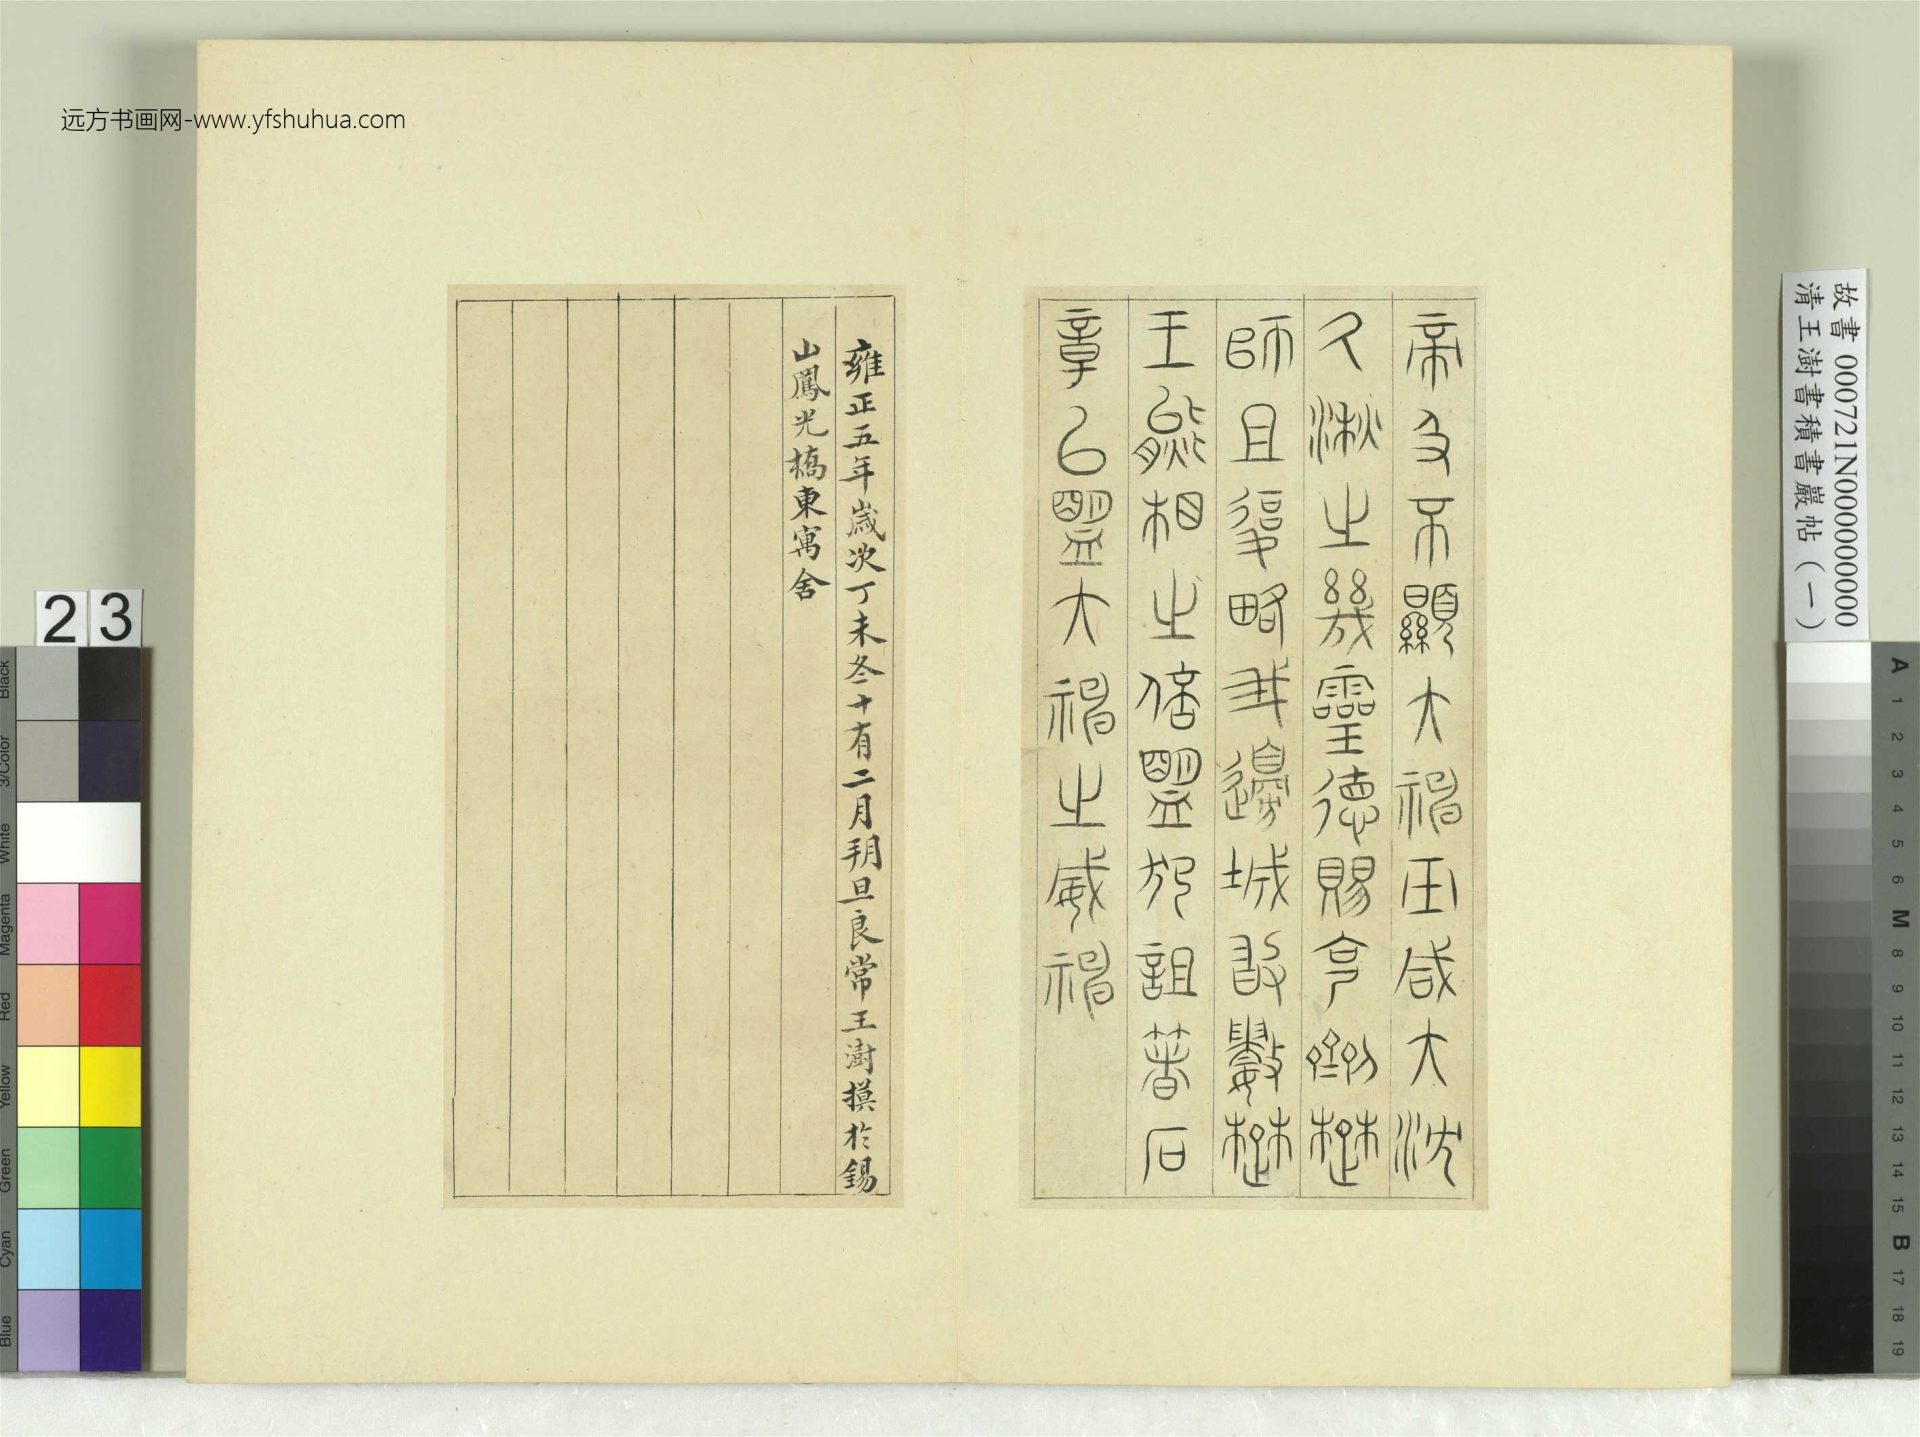 远方书画网-www.yfshuhua.com
故書 000721N000000000
清王澍書積書巖帖（一）
帝及不顯大神巫咸大沈
久湫之幾靈德賜克劑楚
師且復略我邊城敢數楚
王熊相之倍盟犯詛著石
章以盟大神之威神
雍正五年歲次丁未冬十有二月朔旦良常王澍摸於錫
山鳳光橋東寓舍
23
Black
3/Color
White
Magenta
Red
Yellow
Green
Cyan
Blue
A
1
2
3
4
5
6
M
8
9
10
11
12
13
14
15
B
17
18
19